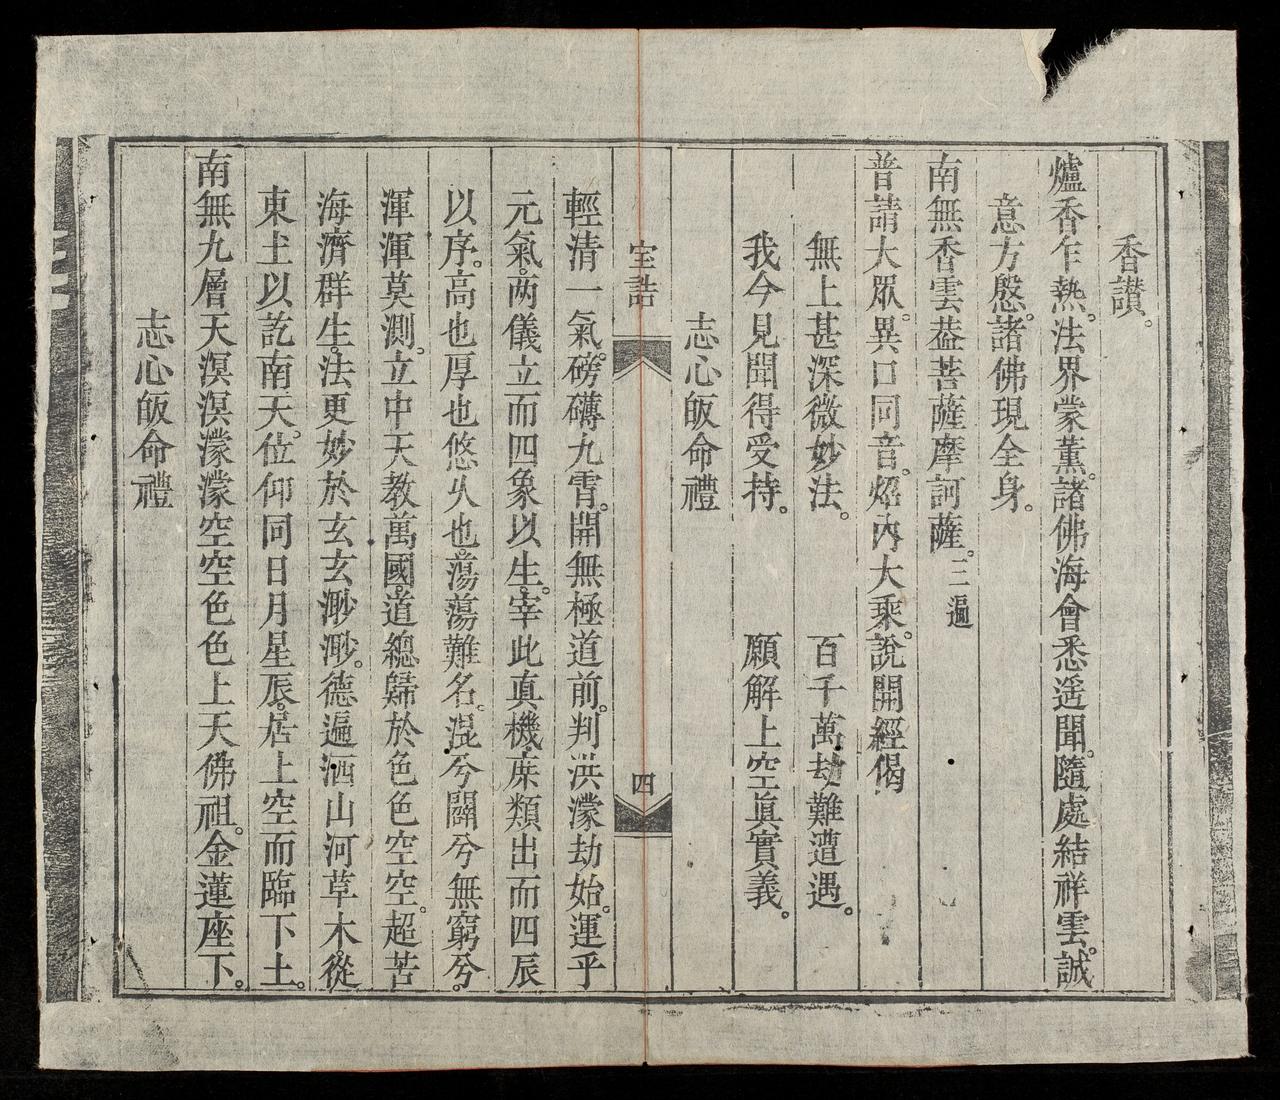 香讃。
爐香乍熱。法界蒙薰。諸佛海會悉遥聞。隨處結祥雲。誠
意方慇。諸佛現全身。
南無香雲葢菩薩摩訶薩。三遍
普請大眾。異口同音。炉內大乘。說開經偈
無上甚深微妙法。 百千萬劫難遭遇。
我今見聞得受持。 願解上空眞實義。
志心皈命禮
宝誥 四
輕清一氣。磅礴九霄。開無極道前。判洪濛劫始。運乎
元氣。两儀立而四象以生。宰此真機。庶類出而四辰
以序。高也厚也悠久也。蕩蕩難名。混兮闢兮無窮兮。
渾渾莫測。立中天教萬國。道總歸於色色空空。超苦
海濟群生。法更妙於玄玄渺渺。德遍洒山河草木。從
東土以訖南天。位仰同日月星辰。居上空而臨下土。
南無九層天溟溟濛濛空空色色上天佛祖。金蓮座下。
志心皈命禮